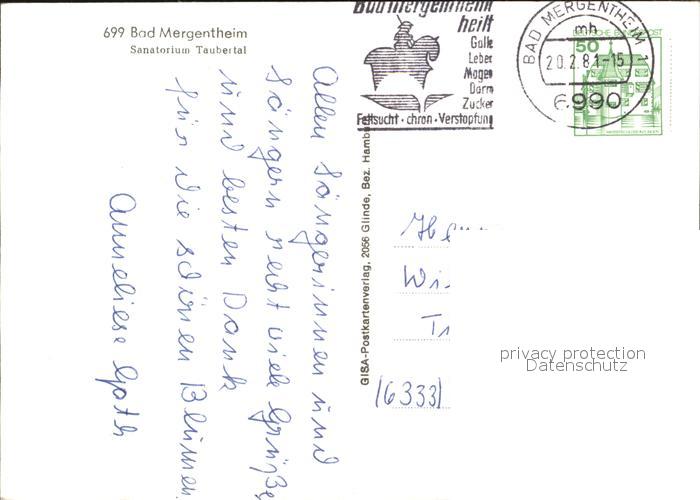 699 Bad Mergentheim
Sanatorium Taubertal
Allen Sängerinnen und
Sängern recht viele Grüße
und besten Dank
für die schönen Blumen
Anneliese
GISA-Postkartenverlag, 2056 Glinde, Bez. Hambu
Bad Mergentheim
heilt
Galle
Leber
Magen
Darm
Zucker
Fettsucht · chron · Verstopfung
BAD MERGENTHEIM 1
mh
20.2.81-15
6990
DEUTSCHE BUNDESPOST
50
Wi
Tr
(6333)
privacy protection
Datenschutz